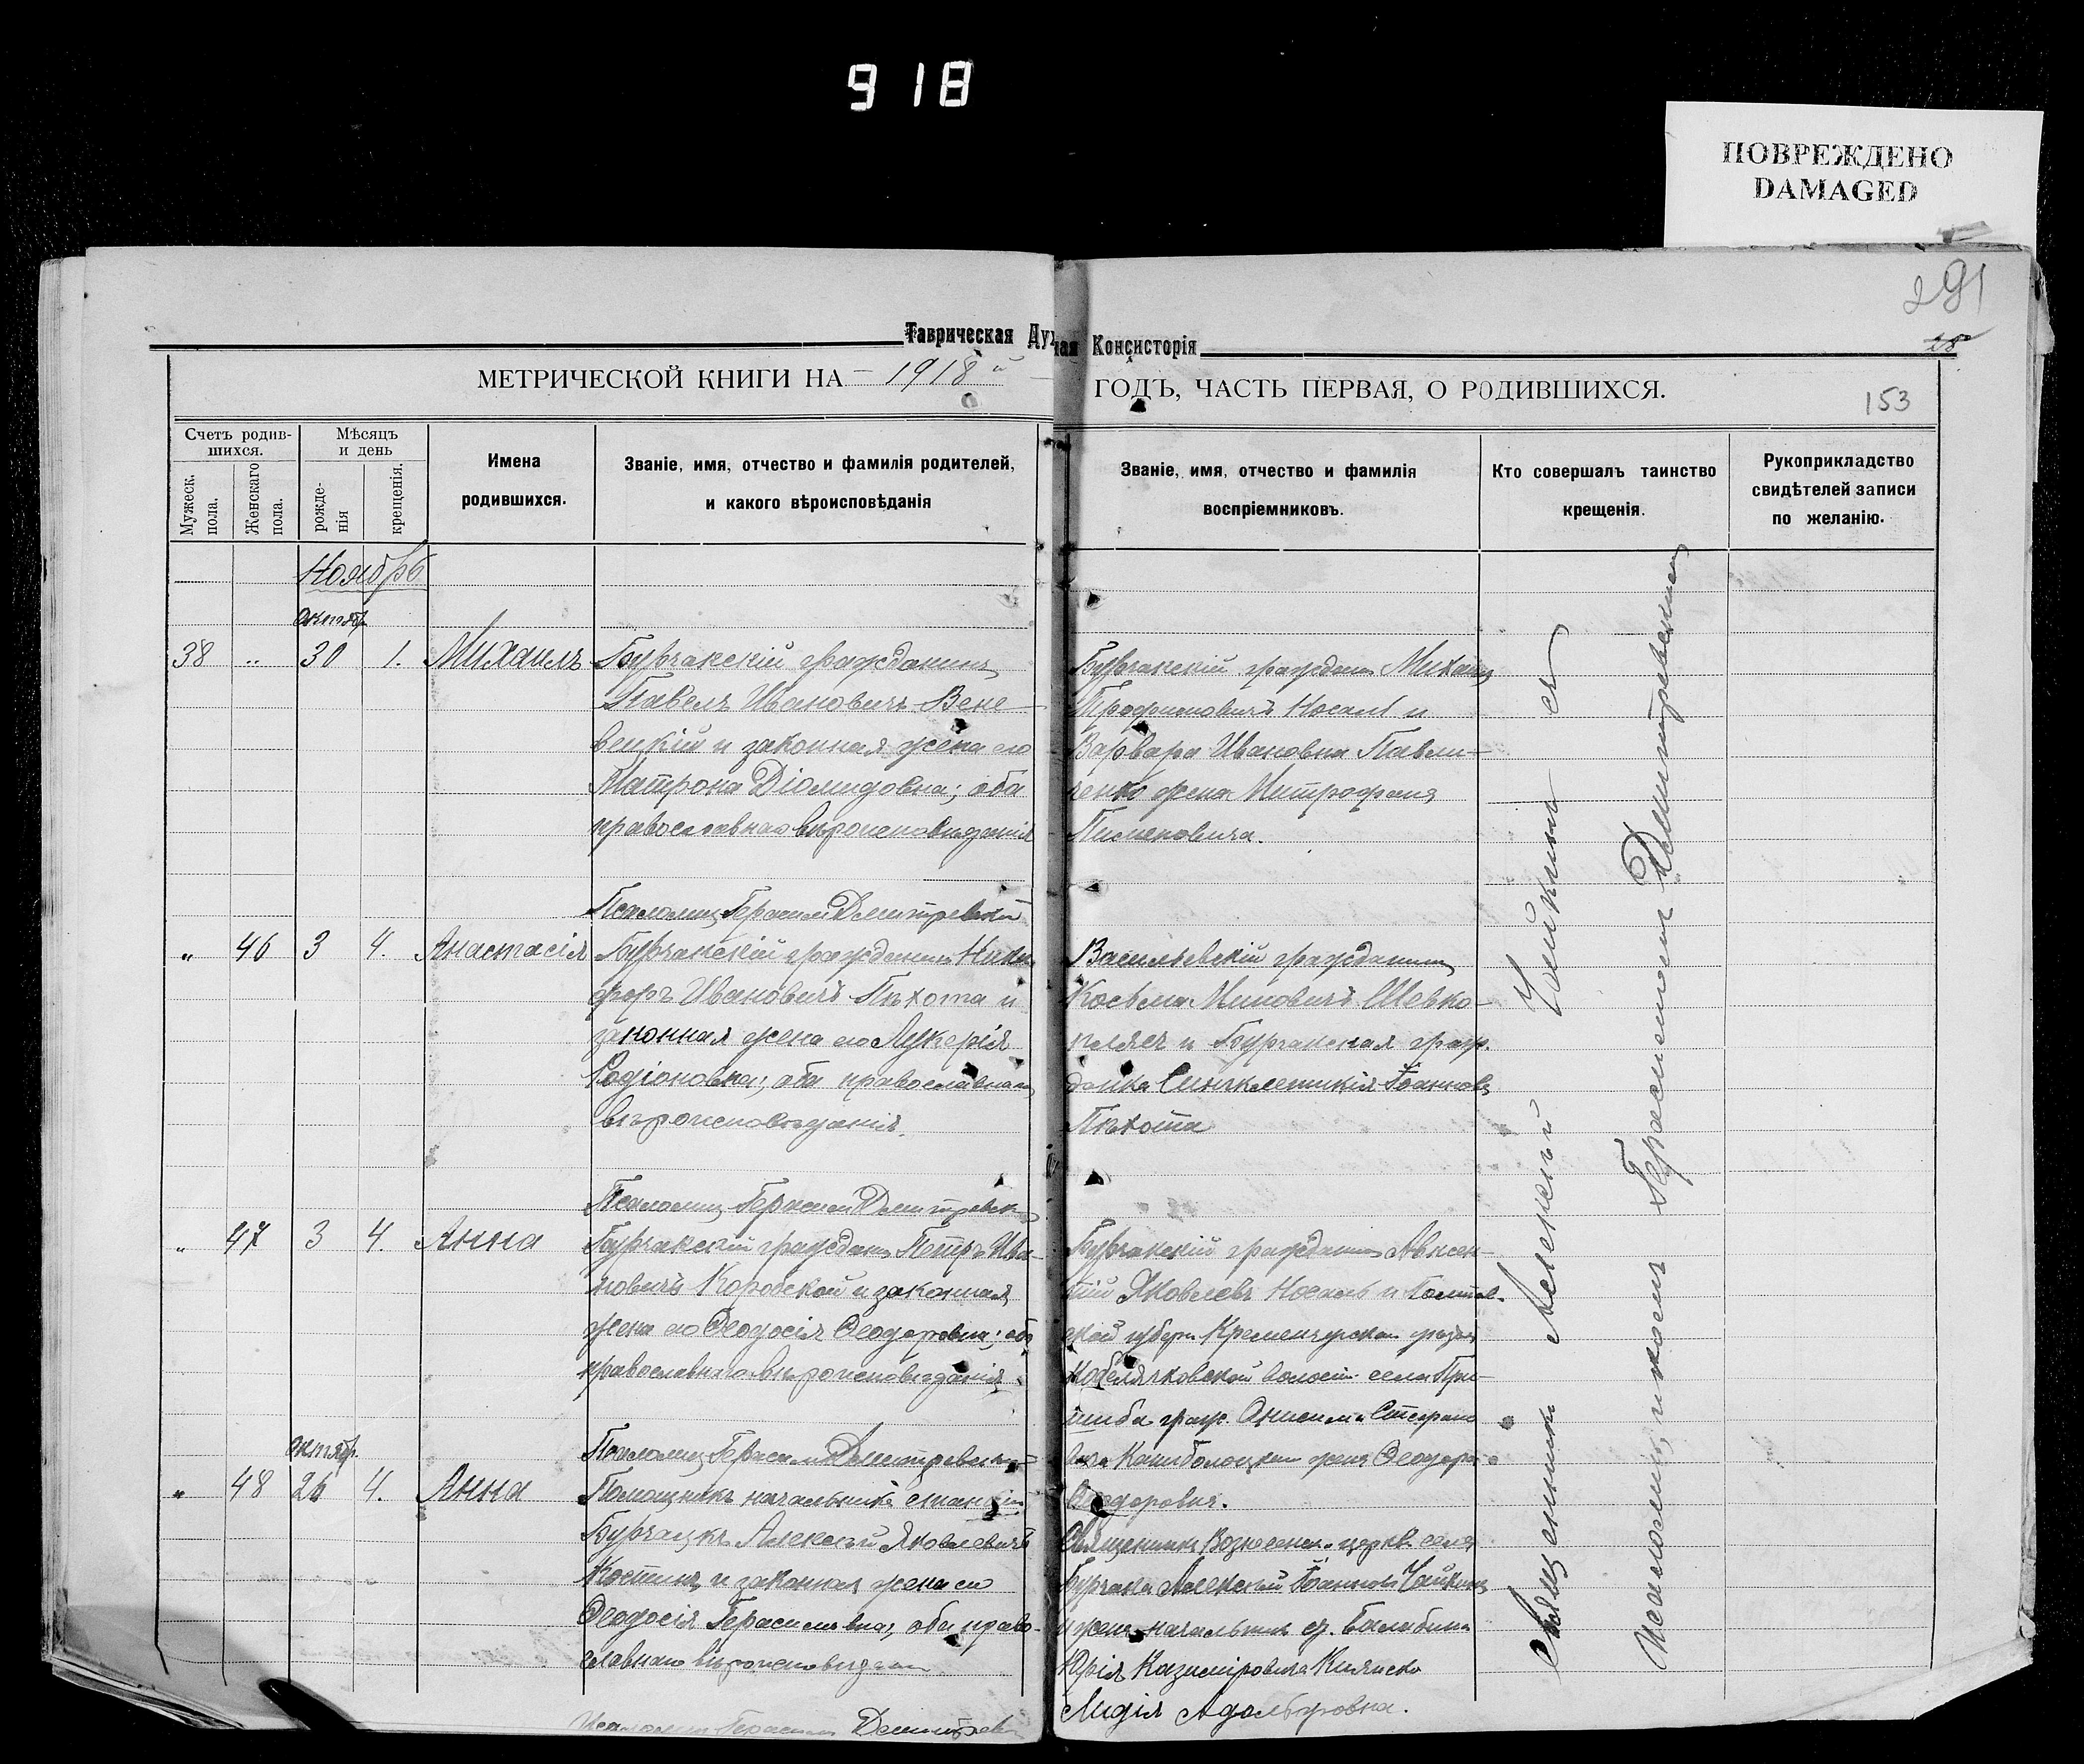 918
ПОВРЕЖДЕНО
DAMAGED
291
28
Таврическая Дух
ная Консисторія
МЕТРИЧЕСКОЙ КНИГИ НА 1918й
ГОДЪ, ЧАСТЬ ПЕРВАЯ, О РОДИВШИХСЯ.
153
Счетъ родив-
шихся.
Мужеск. пола.
Женскаго пола.
Мѣсяцъ
и день
рожде-
нія
крещенія.
Имена
родившихся.
Званіе, имя, отчество и фамилія родителей,
и какого вѣроисповѣданія
Званіе, имя, отчество и фамилія
воспріемниковъ.
Кто совершалъ таинство
крещенія.
Рукоприкладство
свидѣтелей записи
по желанію.
Ноябрь
октябр.
38 " 30 1. Михаилъ
Бурчакскій гражданинъ
Павелъ Ивановичъ Вене-
вецкій и законная жена его
Матрона Діомидовна; оба
православнаго вѣроисповѣданія
Бурчакскій граждан. Михаилъ
Трофимовичъ Носаль и
Варвара Ивановна Павли-
ченко жена Митрофана
Пименовича.
Псаломщ. Герасим Дмитревскій
" 46 3 4. Анастасія
Бурчакскій гражданинъ Ники-
форъ Ивановичъ Пѣхота и
законная жена его Лукерія
Родіоновна; оба православнаго
вѣроисповѣданія.
Васильевскій гражданинъ
Косьма Миновичъ Шевко-
пляс и Бурчакская граж-
данка Синклетикія Іоаннов.
Пѣхота
Псаломщ. Герасим Дмитревск
" 47 3 4. Анна
Бурчакскій граждан. Петръ Ива-
новичъ Коробской и законная
жена его Ѳеодосія Ѳеодоровна; оба
православнаго вѣроисповѣданія
Бурчакскій гражданин Авксен-
тій Яковлевъ Носаль и Полтав-
ской губерн. Кременчугскаго уѣзда
Кобелячковской волости села При-
шиба граж. Стефано
жена Ѳеодора
Ѳеодорович.
октябр.
Псаломщ. Герасим Дмитревскій
" 48 26 4. Анна
Помощникъ начальника станціи
Бурчацкъ Алексѣй Яковлевичъ
Костинъ и законная жена его
Ѳеодосія Герасимовна, оба право-
славнаго вѣроисповѣдан
Священникъ Вознесенск. церкв. села
Бурчака Алексѣй Іоанновъ Чайкинъ
и жена начальник. ст. Балабина
Юрія Казиміровича
Лидія Адольфовна.
Псаломщ. Герасим Дмитрев
Священникъ Алексѣй Чайкинъ съ
Псаломщикомъ Герасимомъ Дмитревскимъ